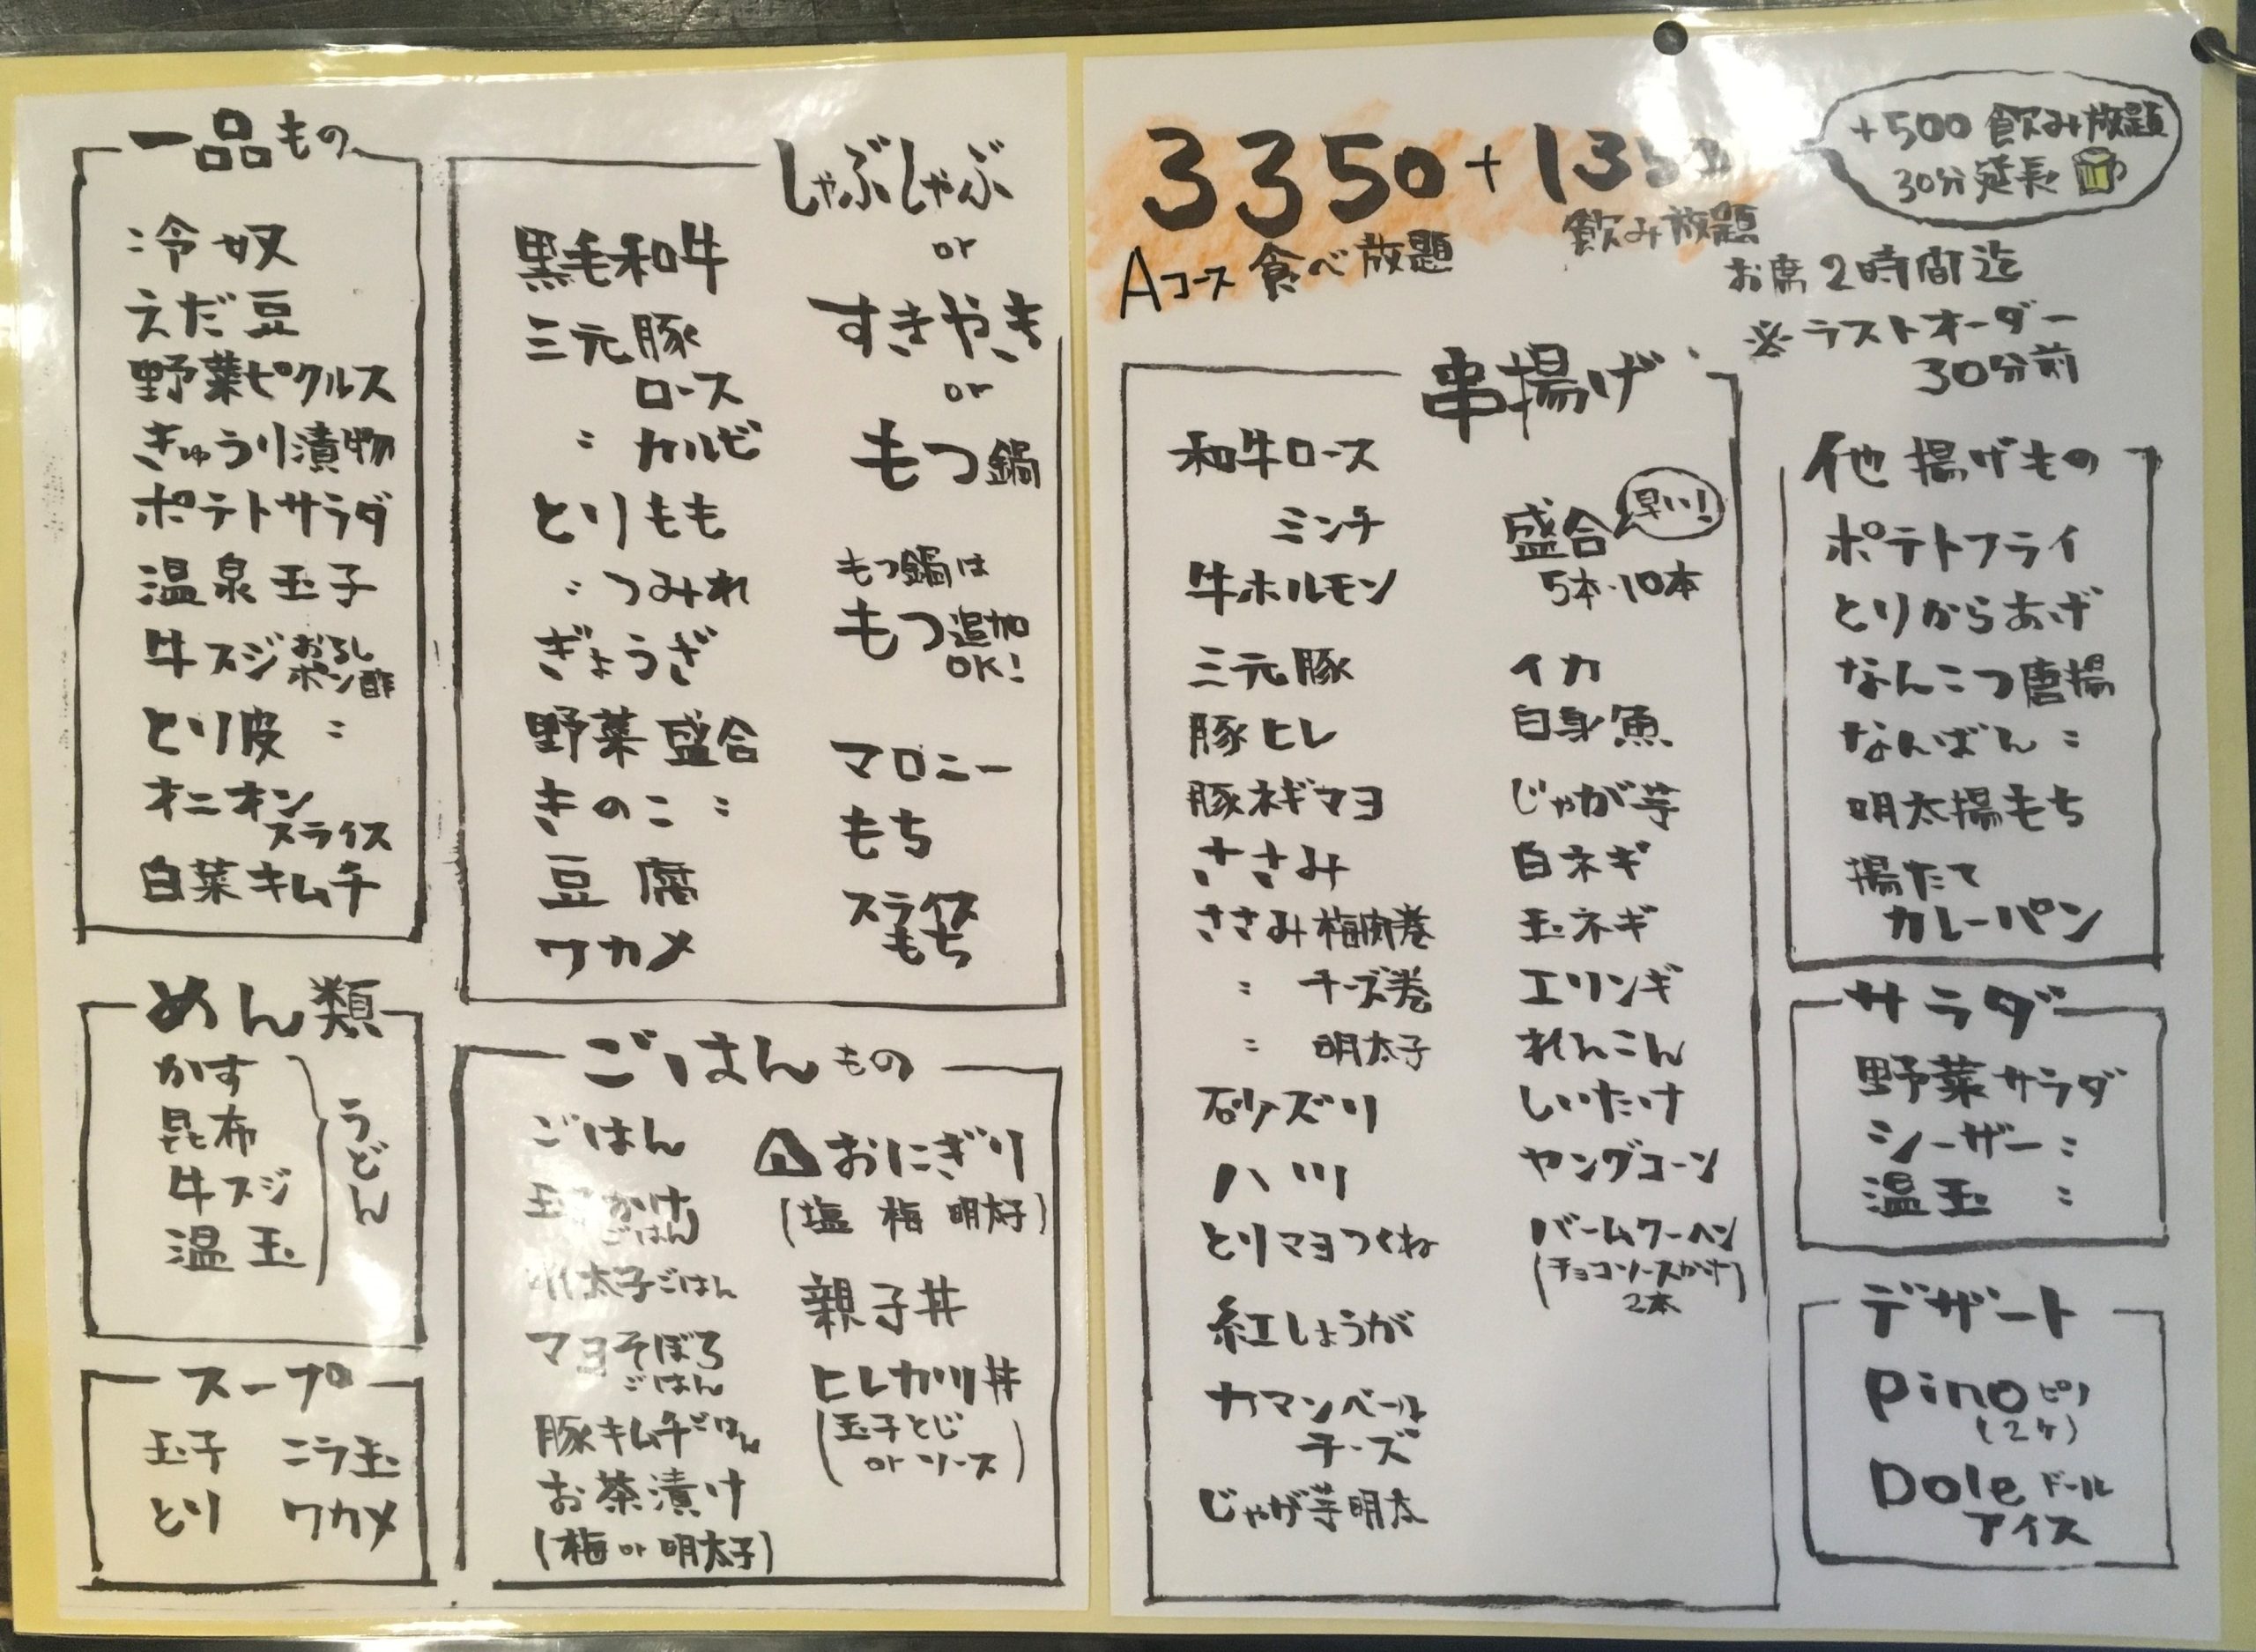 一品もの
冷奴
えだ豆
野菜ピクルス
きゅうり漬物
ポテトサラダ
温泉玉子
牛スジ おろし
ポン酢
とり皮 〃
オニオン
スライス
白菜キムチ
めん類
かす
昆布
牛スジ
温玉
うどん
スープ
玉子 ニラ玉
とり ワカメ
しゃぶしゃぶ
or
すきやき
or
もつ鍋
黒毛和牛
三元豚
ロース
〃 カルビ
とりもも
〃 つみれ
ぎょうざ
野菜盛合
きのこ 〃
豆腐
ワカメ
もつ鍋は
もつ追加
OK!
マロニー
もち
スライス
もち
ごはんもの
ごはん
玉子かけ
ごはん
明太子ごはん
マヨそぼろ
ごはん
豚キムチごはん
お茶漬け
(梅 or 明太子)
おにぎり
(塩 梅 明太子)
親子丼
ヒレカツ丼
(玉子とじ
or ソース)
3350+1350
Aコース 食べ放題 飲み放題
+500 飲み放題
30分延長
お席2時間迄
※ラストオーダー
30分前
串揚げ
和牛ロース
ミンチ
牛ホルモン
三元豚
豚ヒレ
豚ネギマヨ
ささみ
ささみ梅肉巻
〃 チーズ巻
〃 明太子
砂ズリ
ハツ
とりマヨつくね
紅しょうが
カマンベール
チーズ
じゃが芋明太
盛合 早い!
5本・10本
イカ
白身魚
じゃが芋
白ネギ
玉ネギ
エリンギ
れんこん
しいたけ
ヤングコーン
バームクーヘン
(チョコソースがけ)
2本
他 揚げもの
ポテトフライ
とりからあげ
なんこつ唐揚
なんばん 〃
明太揚もち
揚たて
カレーパン
サラダ
野菜サラダ
シーザー 〃
温玉 〃
デザート
pino ピノ
(2ケ)
Dole ドール
アイス